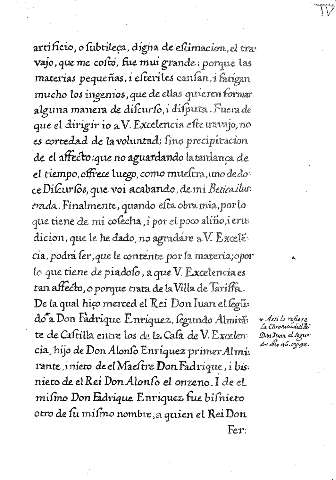 IV
artificio, o subtileça, digna de estimacion, el tra-
vajo, que me costó, fue mui grande; porque las
materias pequeñas, i esteriles cansan, i fatigan
mucho los ingenios, que de ellas quieren formar
alguna manera de discurso, i disputa. Fuera de
que el dirigir io a V. Excelencia este travajo, no
es cortedad de la voluntad; sino precipitacion
de el affecto: que no aguardando la tardança de
el tiempo, offrece luego, como muestra, uno de do-
ce Discursos, que voi acabando, de mi Betica ilus-
trada. Finalmente, quando esta obra mia, por lo
que tiene de mi cosecha, i por el poco aliño, i eru
dicion, que le hé dado, no agradáre a V. Excelē-
cia, podrá ser, que le contente por la materia; o por
lo que tiene de piadoso, a que V. Excelencia es
tan affecto, o porque trata de la Villa de Tariffa.
De la qual hiço merced el Rei Don Iuan el segū-
do * a Don Fadrique Enriquez, segundo Almirā-
te de Castilla entre los de la Casa de V. Excelen-
cia, hijo de Don Alonso Enriquez primer Almi-
rante, i nieto de el Maestre Don Fadrique, i bis-
nieto de el Rei Don Alonso el onzeno. I de el
mismo Don Fadrique Enriquez fue bisnieto
otro de su mismo nombre, a quien el Rei Don
Fer:
* Assi lo refiere
la Chronica del Rei
Don Iuan el segun-
do